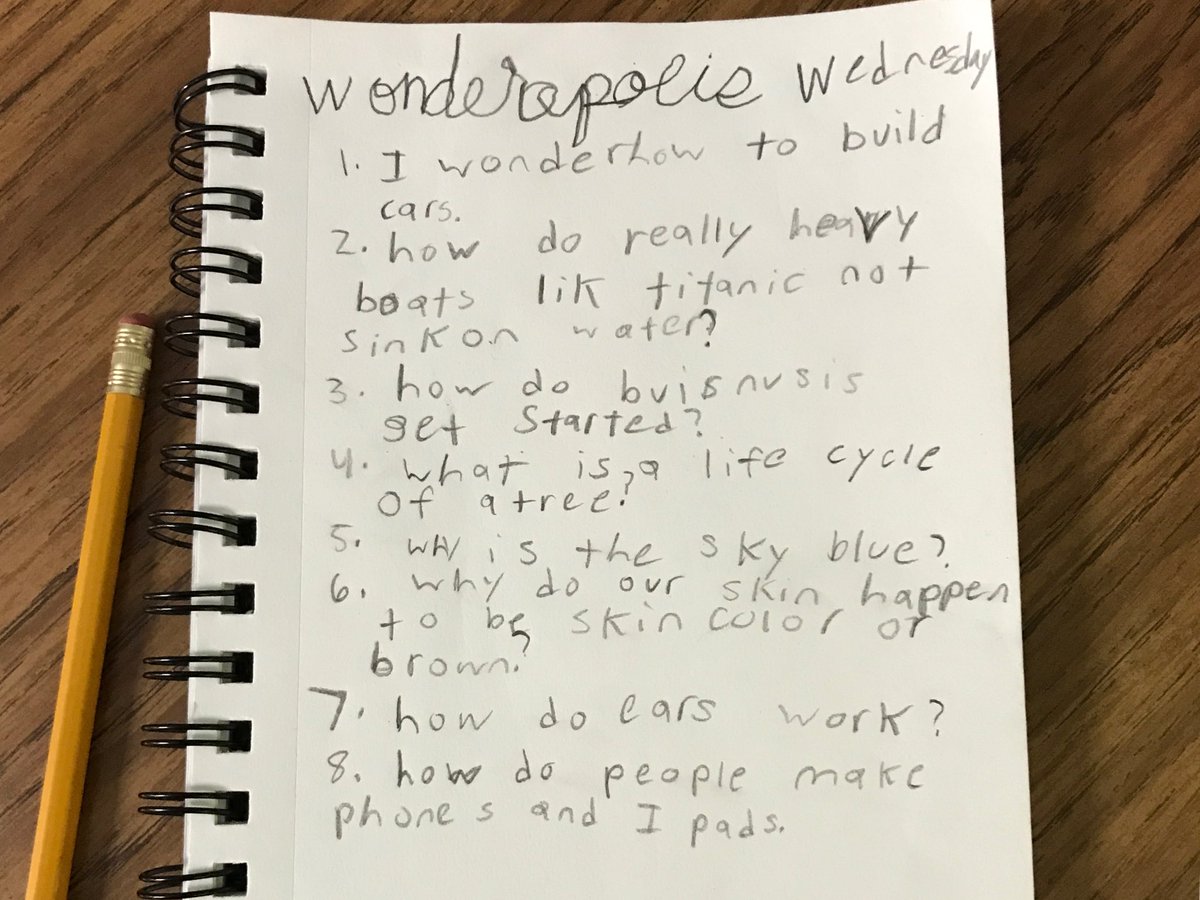 wonderopolis Wednesday
1. I wonder how to build
cars.
2. how do really heavy
boats lik titanic not
sink on water?
3. how do buisnusis
get Started?
4. what is a life cycle
of a tree?
5. why is the sky blue?
6. why do our skin happen
to be skin color or
brown?
7. how do ears work?
8. how do people make
phones and I pads.